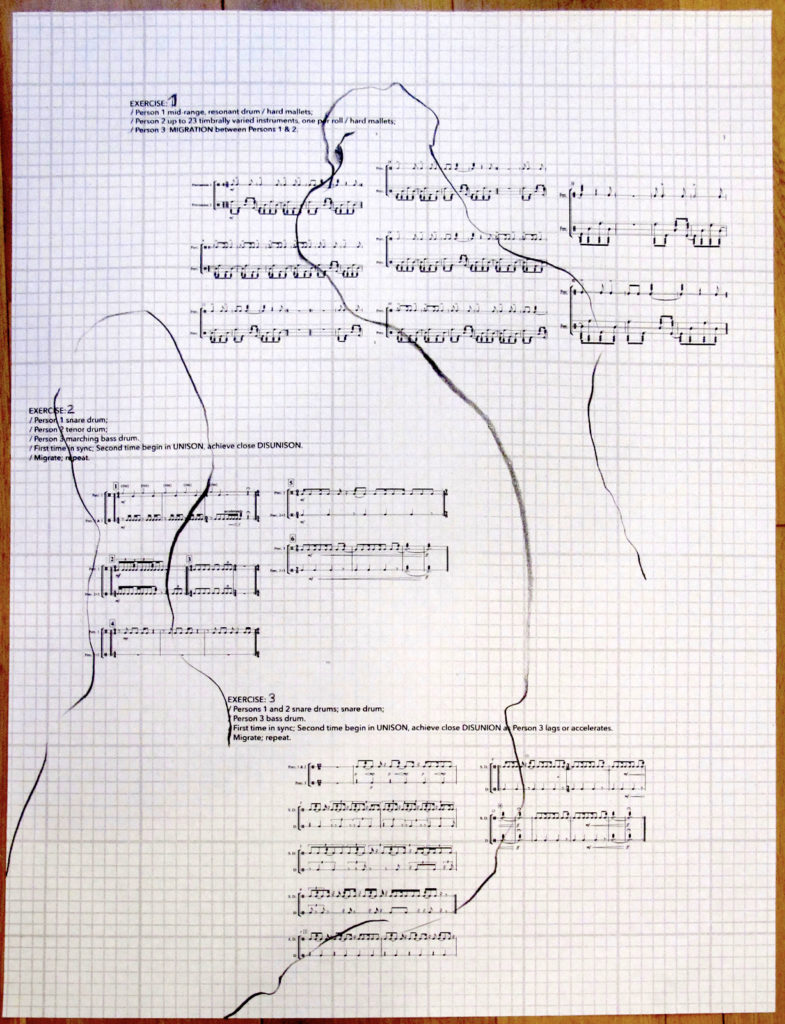 EXERCISE: 1
/ Person 1 mid-range, resonant drum / hard mallets;
/ Person 2 up to 23 timbrally varied instruments, one per roll / hard mallets;
/ Person 3 MIGRATION between Persons 1 & 2.
EXERCISE: 2
/ Person 1 snare drum;
/ Person 2 tenor drum;
/ Person 3 marching bass drum.
/ First time in sync; Second time begin in UNISON, achieve close DISUNISON.
/ Migrate; repeat.
EXERCISE: 3
/ Persons 1 and 2 snare drums; snare drum;
/ Person 3 bass drum.
/ First time in sync; Second time begin in UNISON, achieve close DISUNION as Person 3 lags or accelerates.
Migrate; repeat.